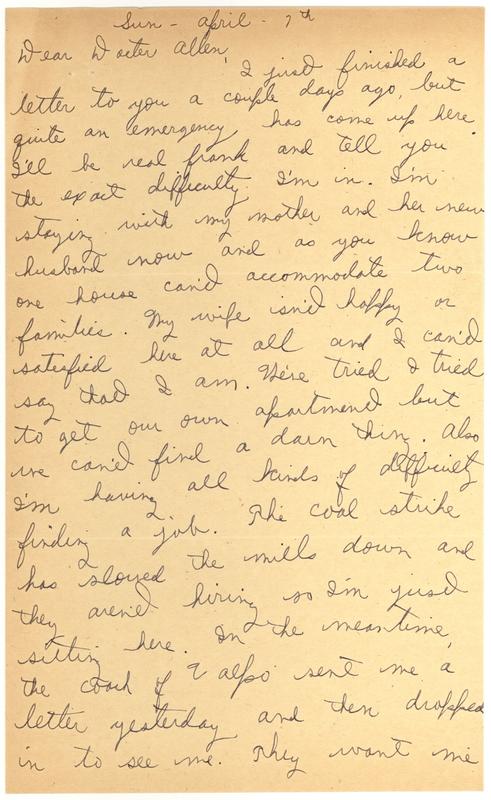 Sun - April - 7th
Dear Docter Allen,
I just finished a
letter to you a couple days ago, but
quite an emergency has come up here.
I'll be real frank and tell you
the exact difficulty I'm in. I'm
staying with my mother and her new
husband now and as you know
one house can't accommodate two
families. My wife isn't happy or
satisfied here at all and I can't
say that I am. We've tried & tried
to get our own apartment but
we can't find a darn thing. Also
I'm having all kinds of difficulty
finding a job. The coal strike
has slowed the mills down and
they aren't hiring so I'm just
sitting here. In the meantime,
the coach of Valpo sent me a
letter yesterday and then dropped
in to see me. They want me